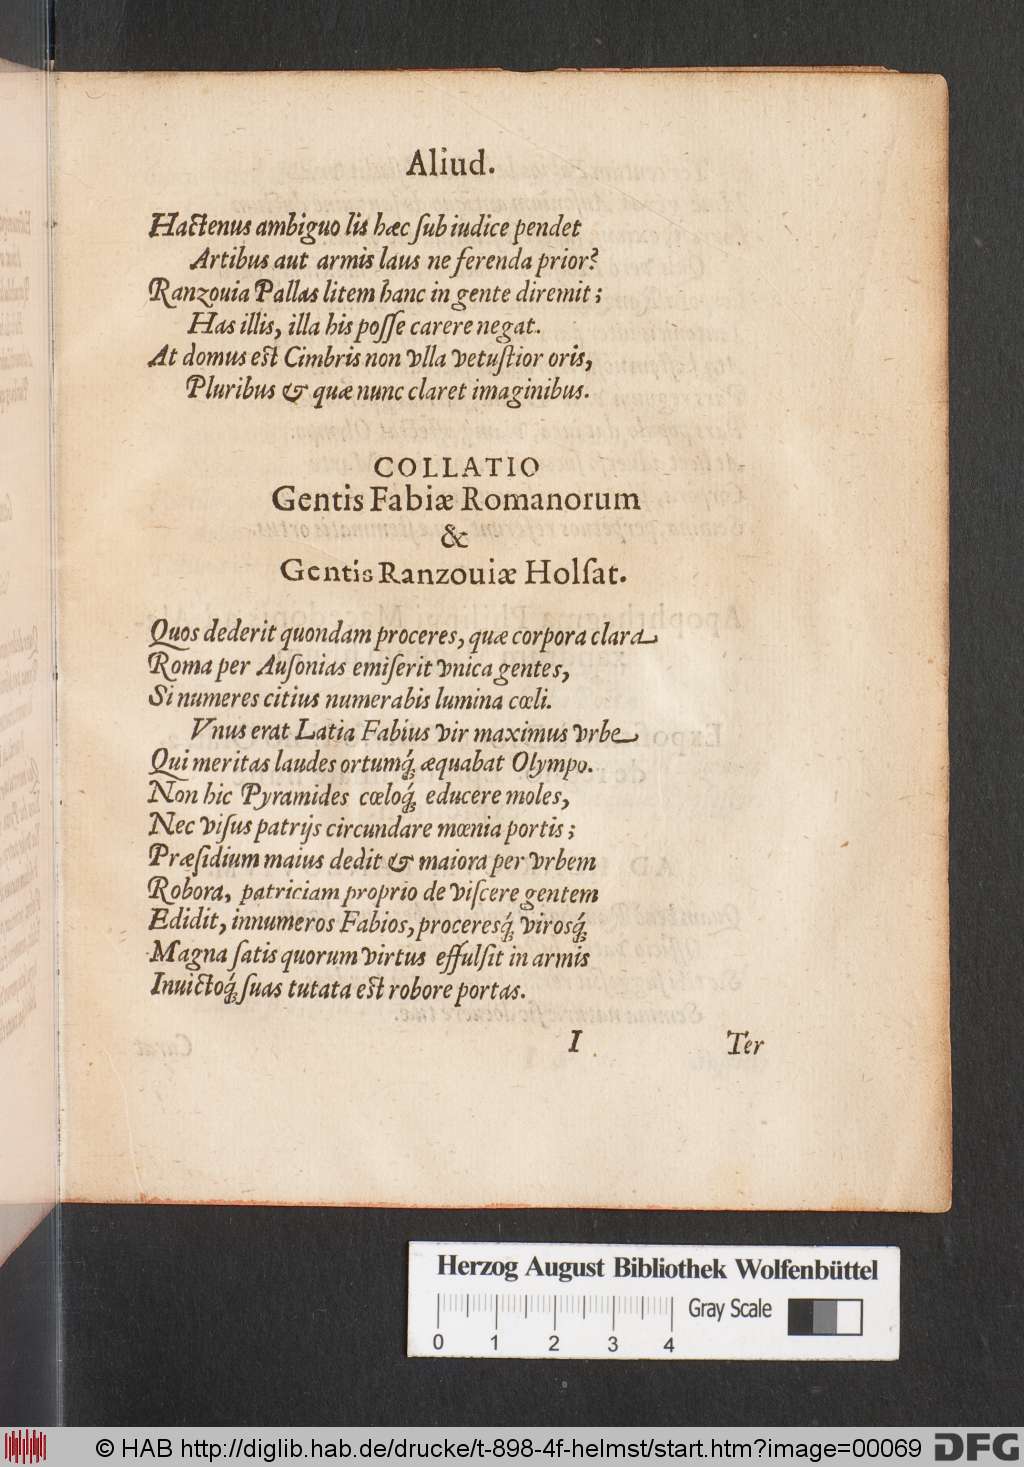 Aliud.
Hactenus ambiguo lis hæc ſub iudice pendet
Artibus aut armis laus ne ferenda prior?
Ranzouia Pallas litem hanc in gente diremit;
Has illis, illa his poſſe carere negat.
At domus est Cimbris non vlla vetuſtior oris,
Pluribus & quæ nunc claret imaginibus.
COLLATIO
Gentis Fabiæ Romanorum
&
Gentis Ranzouiæ Holſat.
Quos dederit quondam proceres, quæ corpora clara
Roma per Auſonias emiſerit vnica gentes,
Si numeres citius numerabis lumina cœli.
Vnus erat Latia Fabius vir maximus vrbe
Qui meritas laudes ortumq́; æquabat Olympo.
Non hic Pyramides cœloq́; educere moles,
Nec viſus patrijs circundare mœnia portis;
Præſidium maius dedit & maiora per vrbem
Robora, patriciam proprio de viſcere gentem
Edidit, innumeros Fabios, proceresq́; virosq́;
Magna ſatis quorum virtus effulſit in armis
Inuictoq́; ſuas tutata est robore portas.
I Ter
Herzog August Bibliothek Wolfenbüttel
Gray Scale
0 1 2 3 4
© HAB http://diglib.hab.de/drucke/t-898-4f-helmst/start.htm?image=00069
DFG